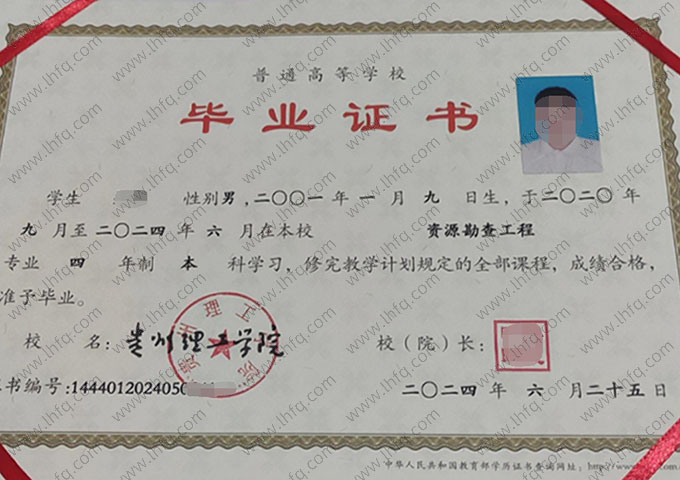 普通高等学校
毕业证书
学生 : 性别 男 , 二〇〇一 年 一 月 九 日生, 于 二〇二〇 年
九 月至 二〇二四 年 六 月在本校 资源勘查工程
专业 四 年制 本 科学习, 修完教学计划规定的全部课程, 成绩合格,
准予毕业。
校 名: 贵州理工学院 校(院)长:
书编号:1444012024050
二〇二四 年 六 月 二十五 日
中华人民共和国教育部学历证书查询网址: http://www.
www.lhfq.com